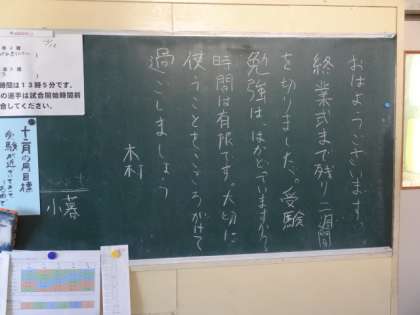 おはようございます。
終業式まで残り二週間
を切りました。受験
勉強は、はかどっていますか？
時間は有限です。大切に
使うことをこころがけて
過ごしましょう
木村
小暮
時間は13時5分です。
の選手は試合開始時間前
合してください。
十二月の月目標